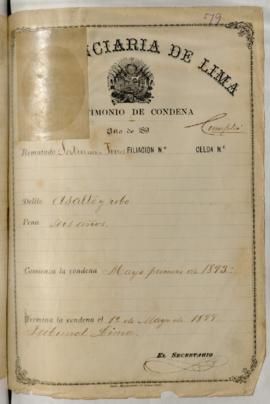 579
NCIARIA DE LIMA
TIMONIO DE CONDENA
Año de 189
Cumplió
Rematado FILIACION N.º CELDA N.º
Delito Asalto y robo
Pena seis años.
Comienza la condena Mayo primero de 1893.
Termina la condena el 1º de Mayo de 1899
Tribunal Lima.
EL SECRETARIO